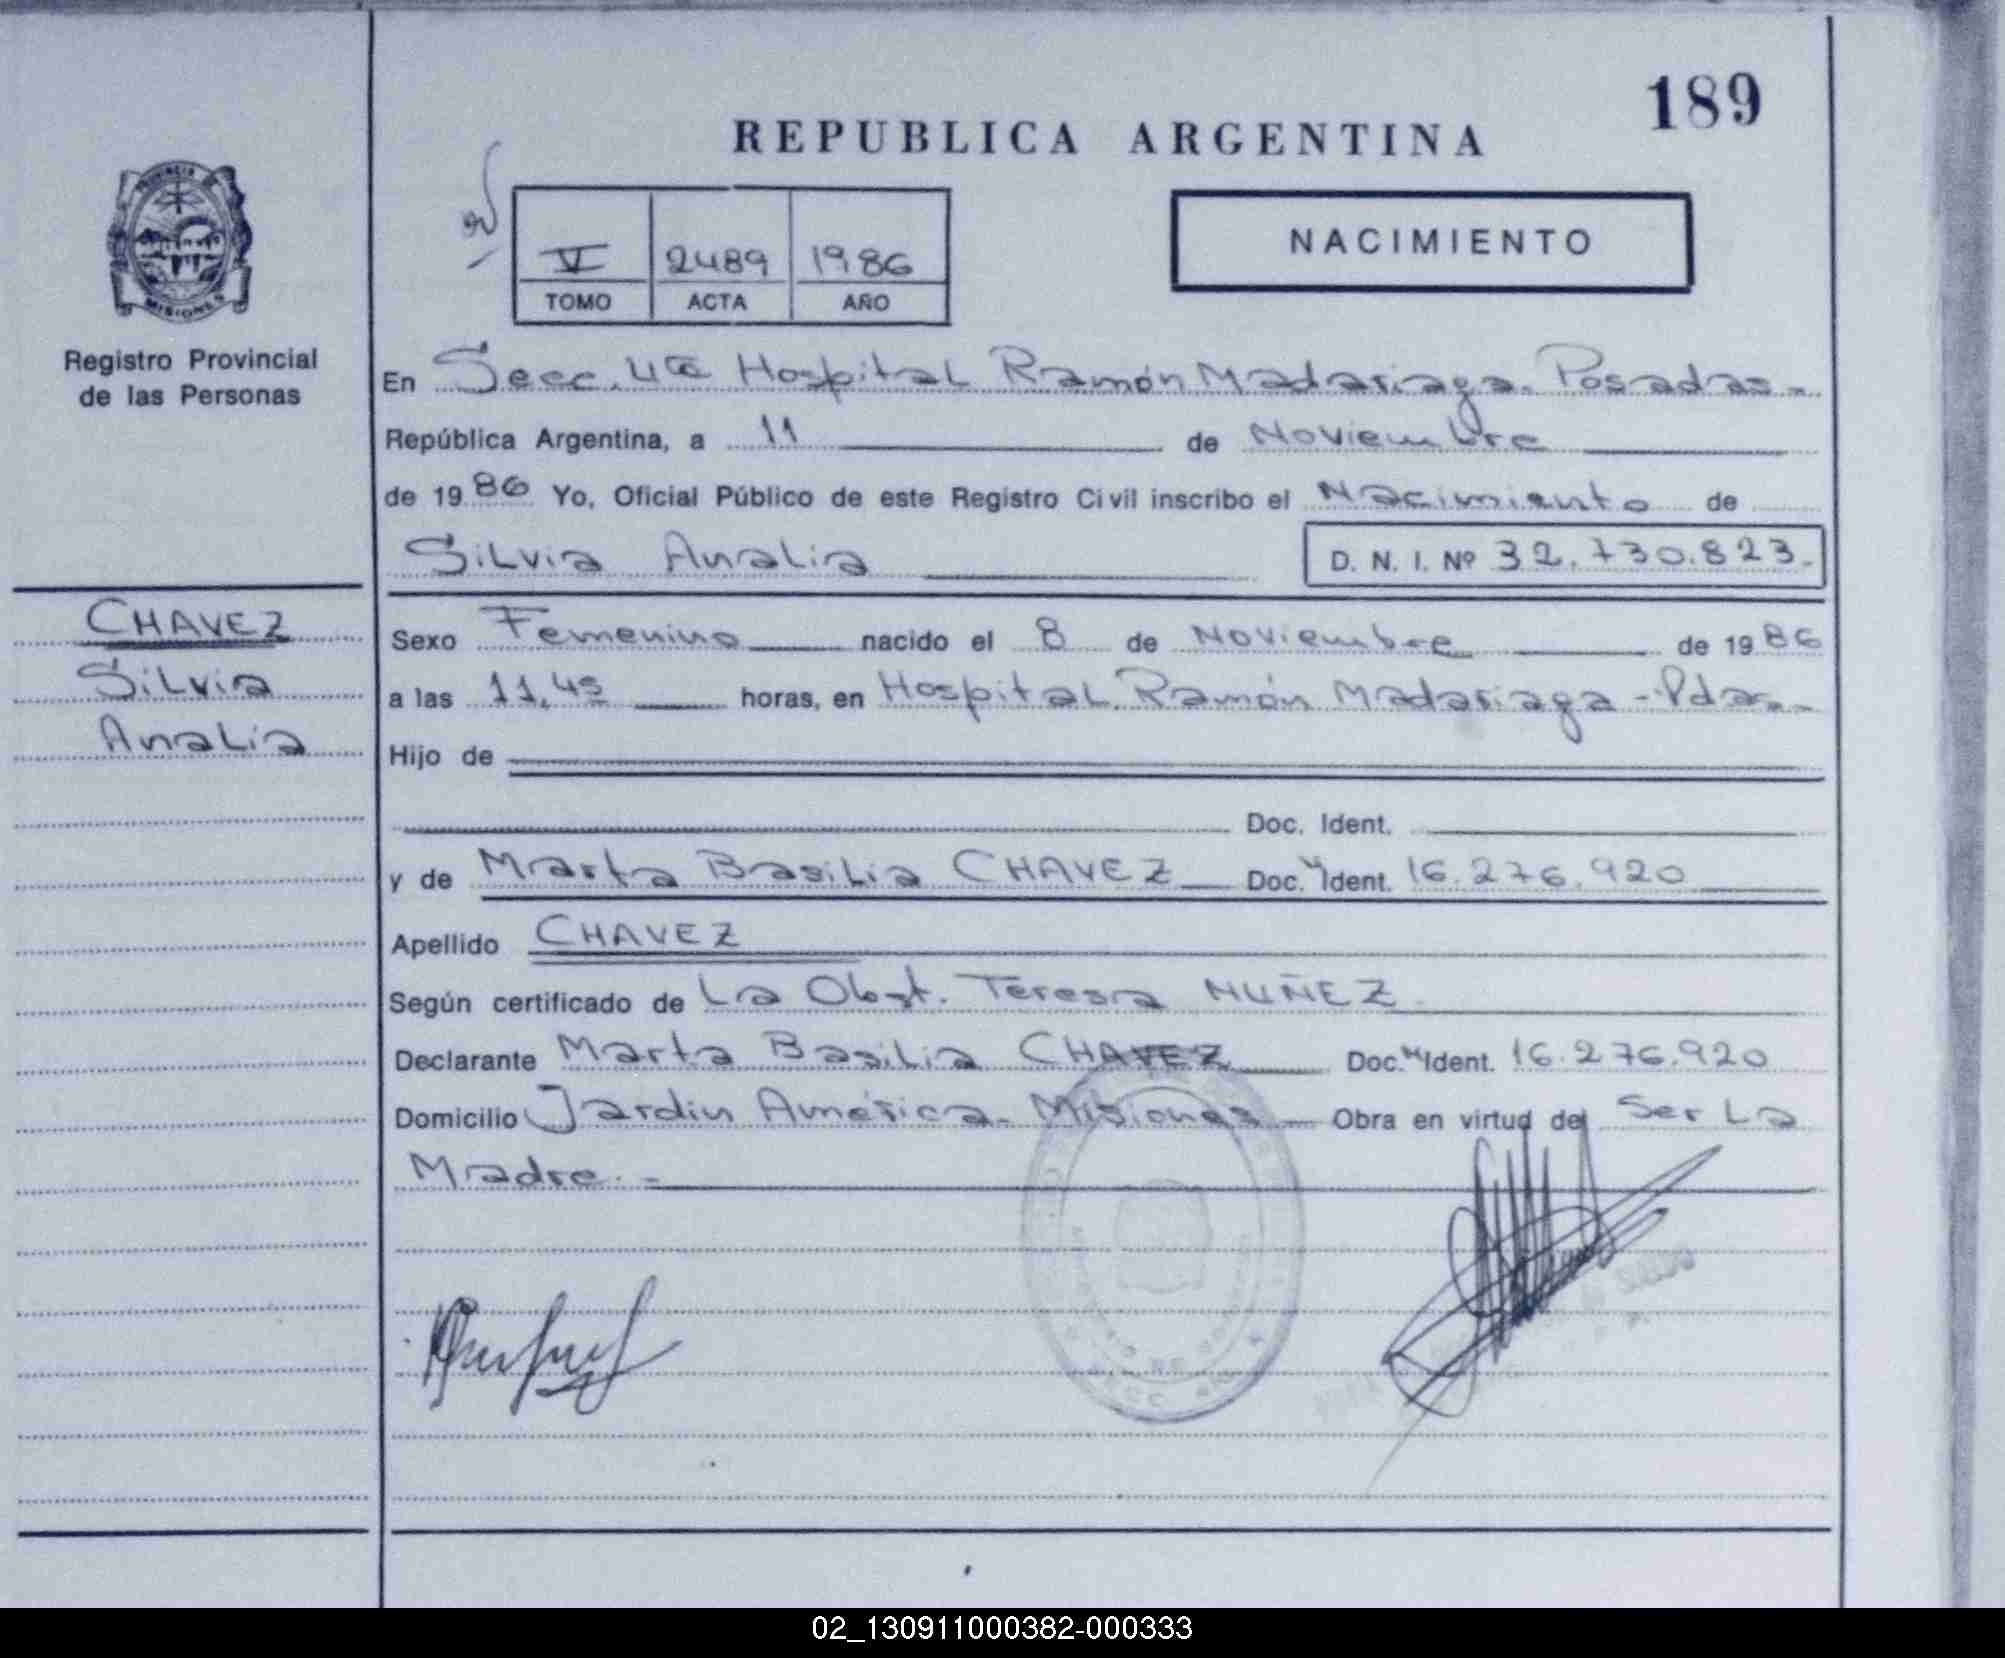 189
REPUBLICA ARGENTINA
NACIMIENTO
V 2489 1986
TOMO ACTA AÑO
PROVINCIA DE
MISIONES
Registro Provincial
de las Personas
En Secc. 4ta Hospital Ramón Madariaga. Posadas -
República Argentina, a 11 de Noviembre
de 1986 Yo, Oficial Público de este Registro Civil inscribo el Nacimiento de
Silvia Analia D. N. I. Nº 32.730.823.-
CHAVEZ
Silvia
Analia
Sexo Femenino nacido el 8 de Noviembre de 1986
a las 11,45 horas, en Hospital Ramón Madariaga - Pdas.-
Hijo de
Doc. Ident.
y de Marta Basilia CHAVEZ Doc. Ident. 16.276.920
Apellido CHAVEZ
Según certificado de La Obst. Teresa NUÑEZ
Declarante Marta Basilia CHAVEZ Doc. Ident. 16.276.920
Domicilio Jardin América - Misiones - Obra en virtud de Ser La
Madre. -
02_130911000382-000333